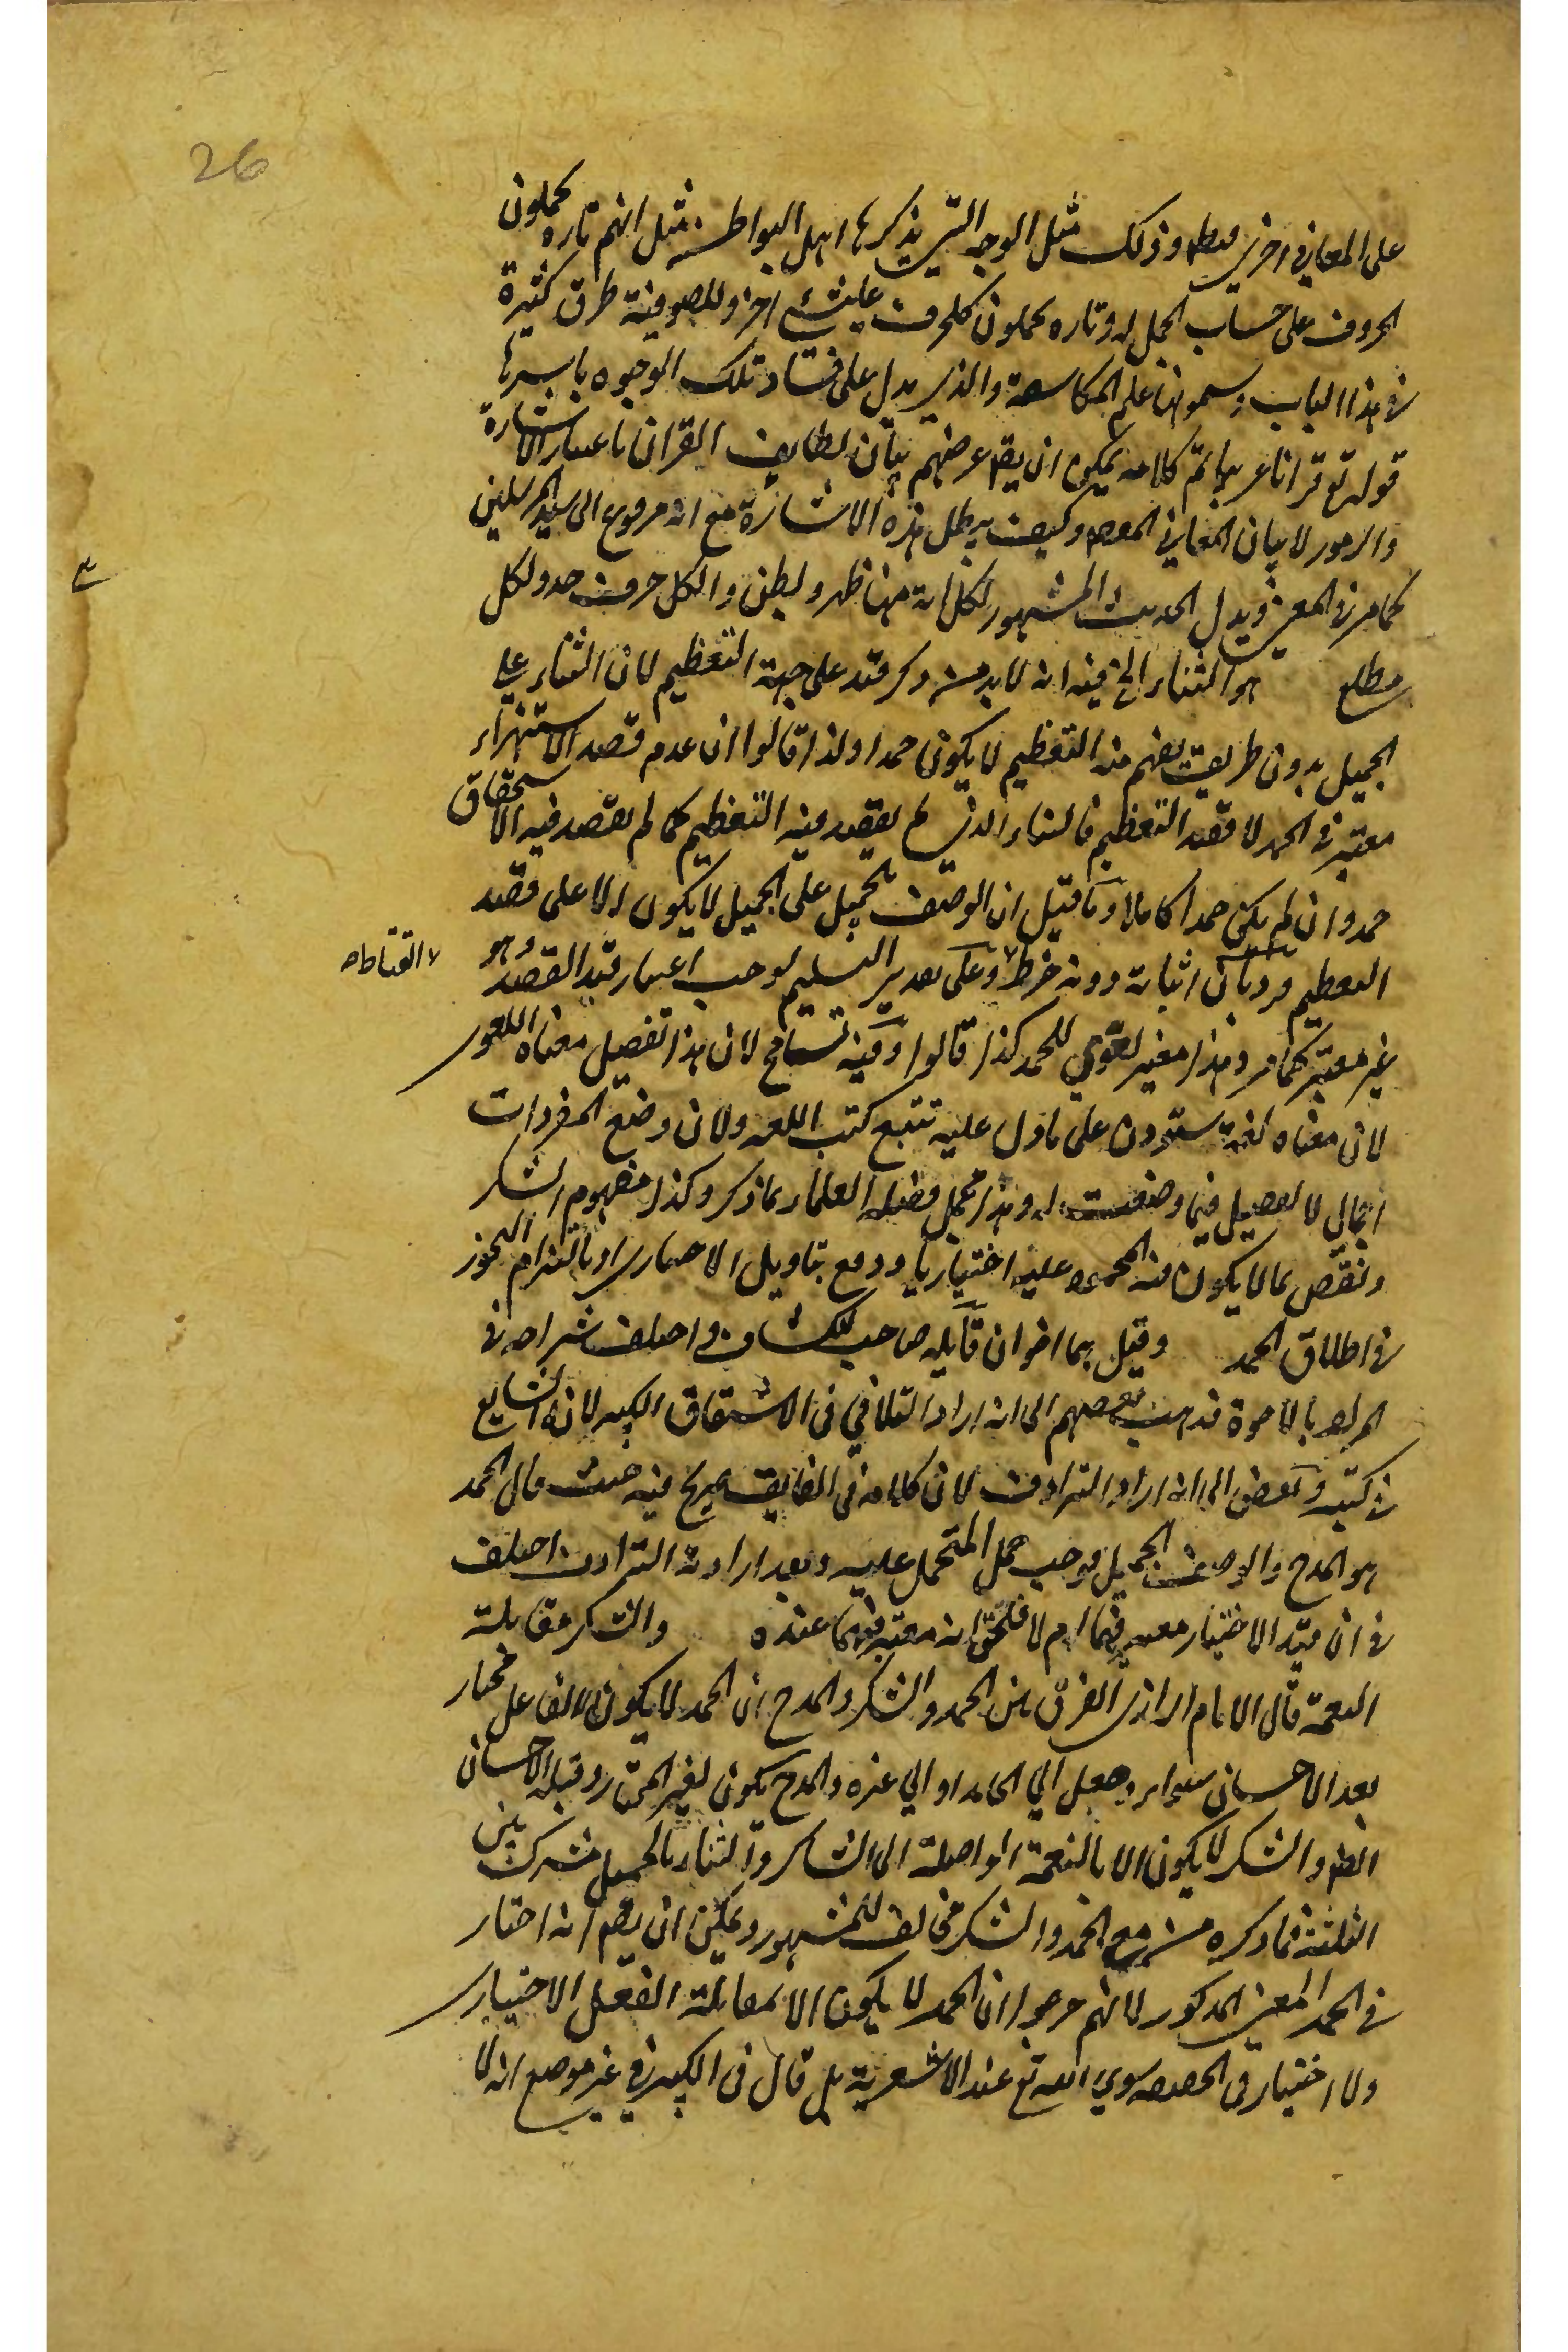 26
على المعاني اخرى وذلك مثل الوجه التي يذكرها اهل البواطن مثل انهم تاره يحملون
الحروف على حساب الجمل وتاره يحملون كلحرف على شيء اخر وللصوفية طرق كثيرة
في هذا الباب ويسمونها علم المكاشفة والذي يدل على فساد تلك الوجوه باسرها
قوله تع قرانا عربيا تم كلامه يمكن ان يقم غرضهم بيان لطايف القران باعتبار الاشارة
والرموز لا بيان المعاني وكيف يبطل هذه الاشارة مع انه مرفوع الى سيد المرسلين
كما مر في المعنى ويدل الحديث المشهور لكل اية منها ظهر وبطن والكل حرف حد ولكل
مطلع هو الثناء الخ فيه انه لا بد من ذكر قيد على جهة التعظيم لان الثناء على
الجميل بدون طريقة يفهم منه التعظيم لا يكون حمدا ولذا قالوا ان عدم قصد الاستهزاء
معتبر في الحمد لا قصد التعظيم فالثناء الذي لم يقصد فيه التعظيم كما لم يقصد فيه الاستحقاق
حمد وان لم يكن حمدا كاملا وما قيل ان الوصف بجميل على الجميل لا يكون الا على قصد
التعظيم مردبان اثباته دونه خرط وعلى تقدير التسليم يوجب اعتبار قيد القصد وهو
القتاط
غير معتبر كما مر وهذا معنى لغوي للحمد كذا قالوا وفيه تسامح لان هذا تفصيل معناه اللغوي
لان معناه لغة ستودن على ما دل عليه تتبع كتب اللغه ولان وضع المفردات
اجمالي لا تفصيل فيما وضعت له وهذا مجمل فصله العلماء بما ذكر وكذا مفهوم الشكر
ونقض بما لا يكون فيه المحمود عليه اختياريا ودفع بتاويل الاختياري او بالتزام التجوز
في اطلاق الحمد وقيل هما اخوان قايله صاحب الكشاف واختلف شراحه في
المراد بالاخوة فذهب بعضهم الى انه اراد التلاقي في الاشتقاق الكبير لانه الشايع
في كتبه وبعض الى انه اراد الترادف لان كلامه في الفايق صريح فيه حيث قال الحمد
هو المدح والوصف بالجميل وبعد ارادته الترادف اختلف
في ان قيد الاختيار معتبر فيهما ام لا فلحق انه معتبر فيهما عنده والشكر مقابلة
النعمة قال الامام الرازي الفرق بين الحمد والشكر والمدح ان الحمد لا يكون الا لفاعل مختار
بعد الاحسان سواء وصل الي الحامد او الي غيره والمدح يكون لغير المختار وقبل الاحسان
ايضا والشكر لا يكون الا بالنعمة الواصلة الى الشاكر والثناء بالجميل مشترك بين
الثلثة فما ذكره من مع الحمد والشكر مخالف للمشهور ويمكن ان يقم انه اختار
في الحمد المعنى المذكور لانهم صرحوا ان الحمد لا يكون الا بمقابلة الفعل الاختياري
ولا اختيار في الحقيقه سوي الله تع عند الاشعرية بل قال في الكبير في غير موضع انه لا